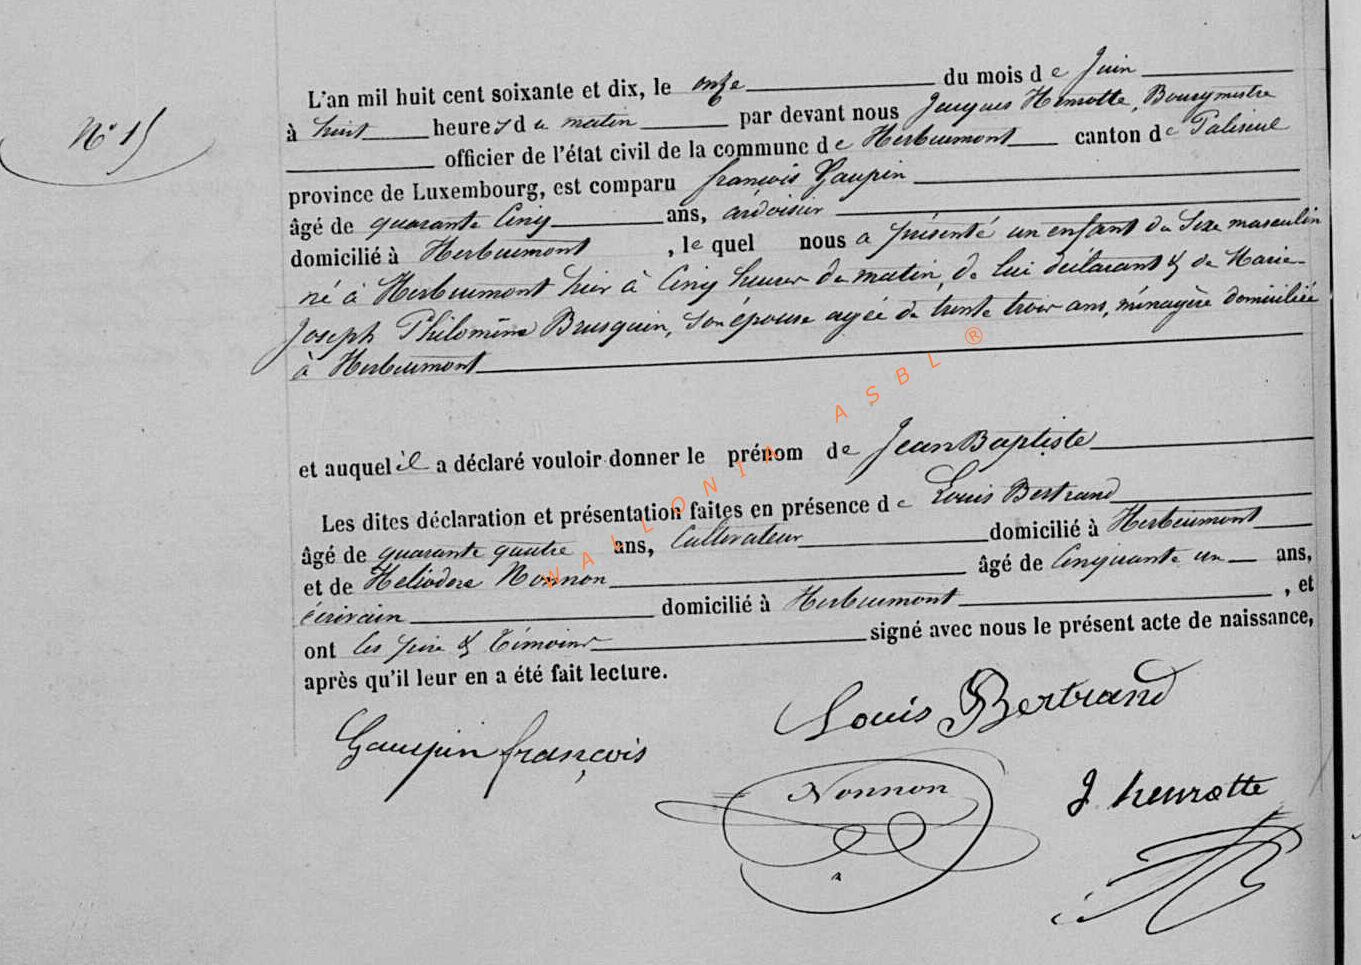 N° 15
L'an mil huit cent soixante et dix, le onze du mois de Juin
à huit heures du matin par devant nous Jacques Henrotte, Bourgmestre
officier de l'état civil de la commune de Herbeumont canton de Paliseul
province de Luxembourg, est comparu françois Gaupin
âgé de quarante Cinq ans, ardoisier
domicilié à Herbeumont, lequel nous a présenté un enfant du Sexe masculin
né à Herbeumont hier à Cinq heures du matin, de lui déclarant & de Marie-
Joseph Philomène Brusquin, son épouse agée de trente trois ans, ménagère domiciliée
à Herbeumont
et auquel il a déclaré vouloir donner le prénom de Jean Baptiste
Les dites déclaration et présentation faites en présence de Louis Bertrand
âgé de quarante quatre ans, Cultivateur domicilié à Herbeumont
et de Héliodore Nonnon âgé de Cinquante un ans,
écrivain domicilié à Herbeumont, et
ont les père & témoins signé avec nous le présent acte de naissance,
après qu'il leur en a été fait lecture.
Louis Bertrand
Gaupin françois
Nonnon
J. henrotte
WALLONIA ASBL ®